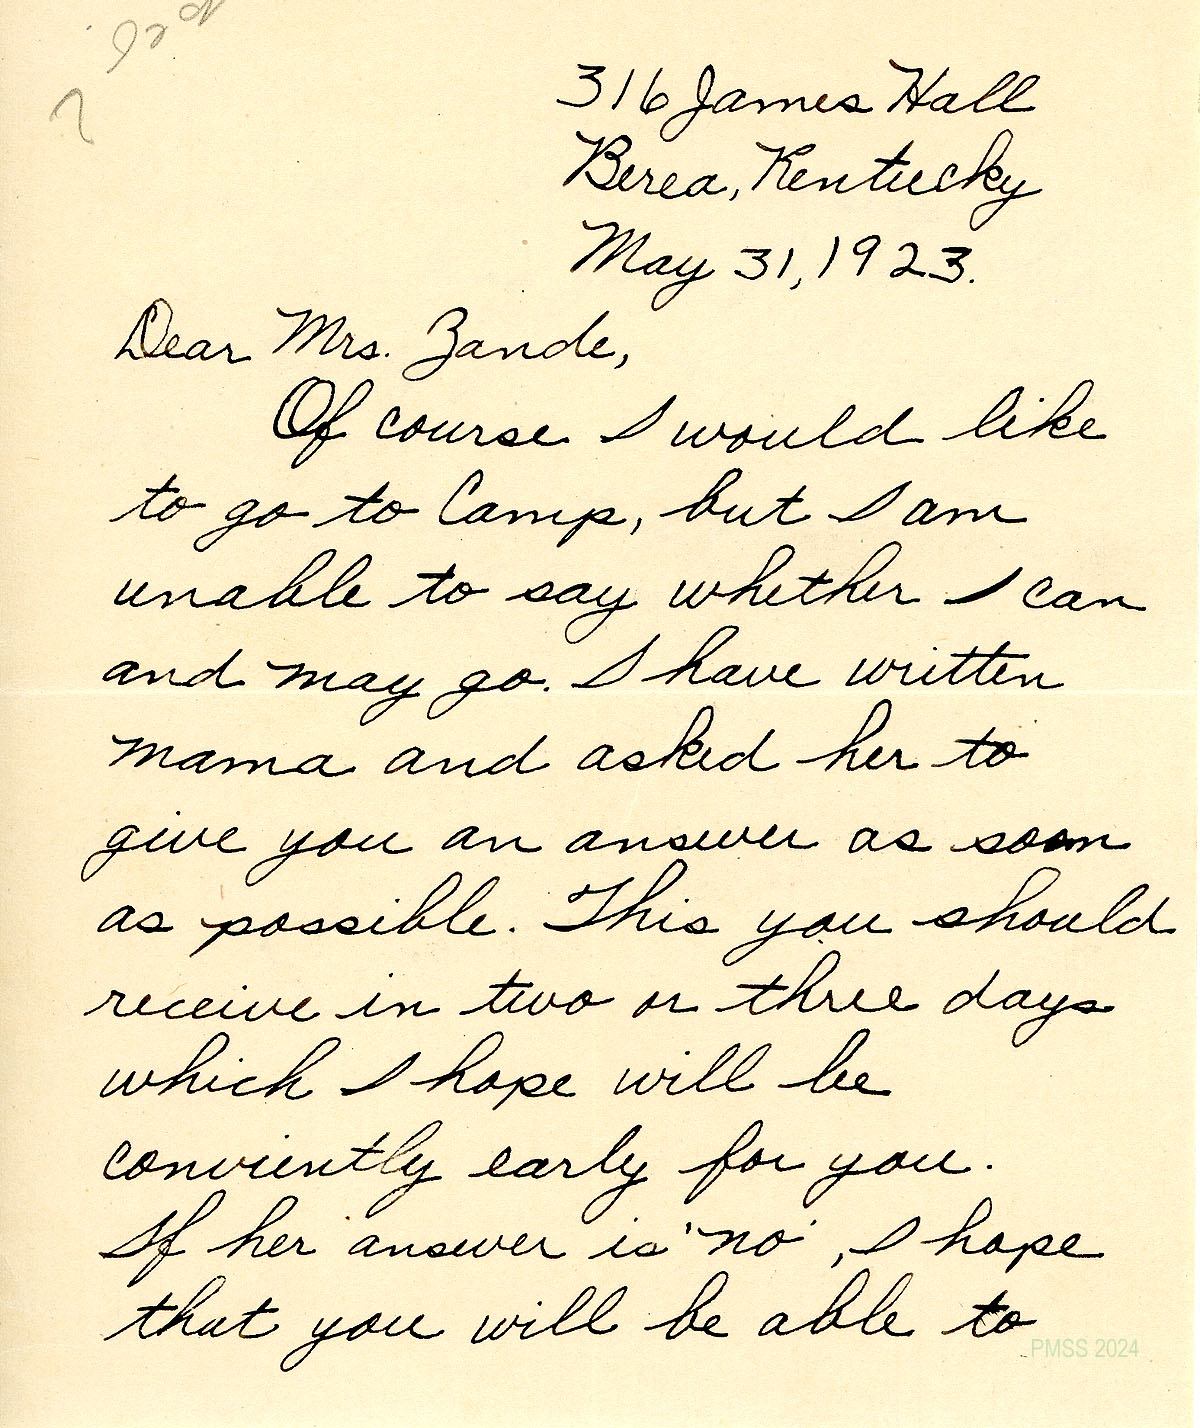 316 James Hall
Berea, Kentucky
May 31, 1923.
Dear Mrs. Zande,
Of course I would like
to go to Camp, but I am
unable to say whether I can
and may go. I have written
mama and asked her to
give you an answer as soon
as possible. This you should
receive in two or three days
which I hope will be
conviently early for you.
If her answer is "no", I hope
that you will be able to
PMSS 2024